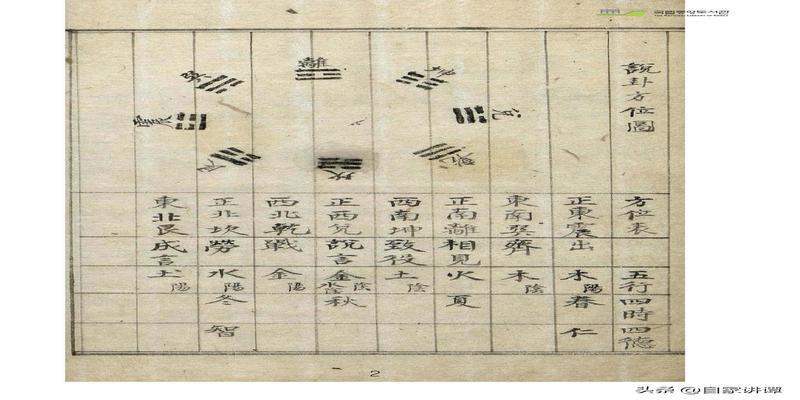 국립중앙도서관
THE NATIONAL LIBRARY OF KOREA
說卦方位圖
離
巽
坤
震
兌
艮
坎
乾
方位表 五行四時四德
正東震出 木陽春 仁
東南巽齊 木陰
正南離相見 火 夏
西南坤致役 土陰
正西兌說言 金陰 秋
西北乾戰 金陽
正北坎勞 水陽冬 智
東北艮成言 土陽
2
头条 @自家讲谭